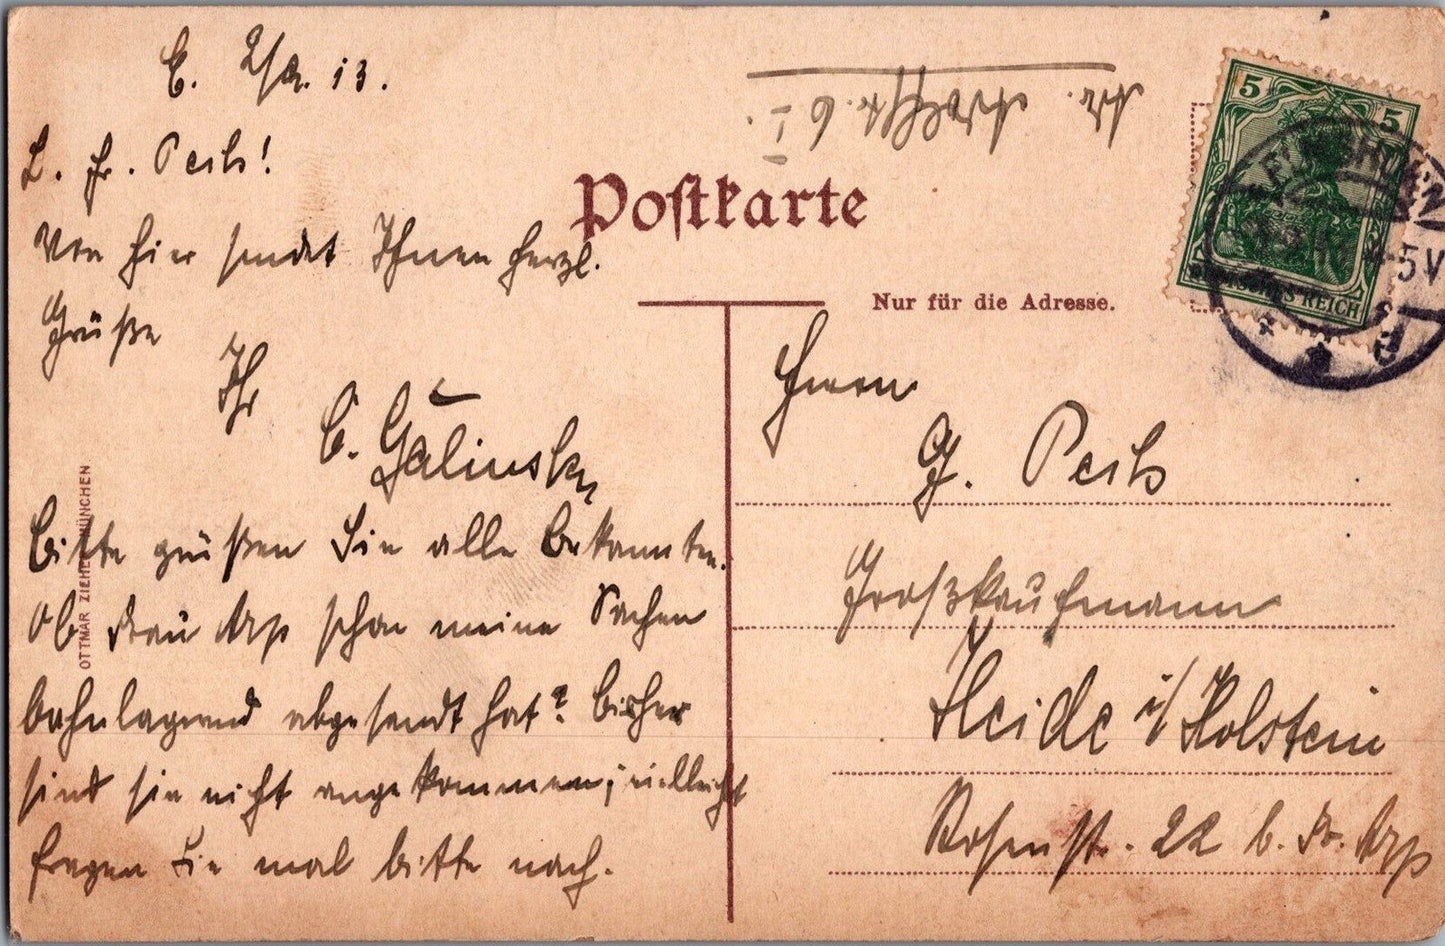 E. 2/2. 13.
L. Fr. Peils!
Von hier sendet Ihnen herzl.
Grüße
Ihr
E. Galinsky
Bitte grüßen Sie alle Bekannten.
Ob Frau Arp schon meine Sachen
bahnlagernd abgesandt hat? Bisher
sind sie nicht angekommen; vielleicht
fragen Sie mal bitte nach.
OTTMAR ZIEHER MÜNCHEN
Postkarte
Nur für die Adresse.
5 5
DEUTSCHES REICH
Herrn
G. Peils
Großkaufmann
Heide i/Holstein
Rosenstr. 22 b. Fr. Arp